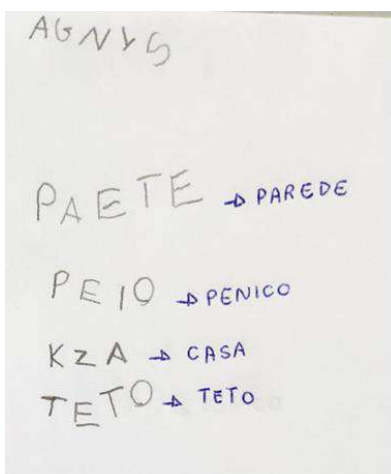 AGNYS
PAETE → PAREDE
PEIO → PENICO
KZA → CASA
TETO → TETO